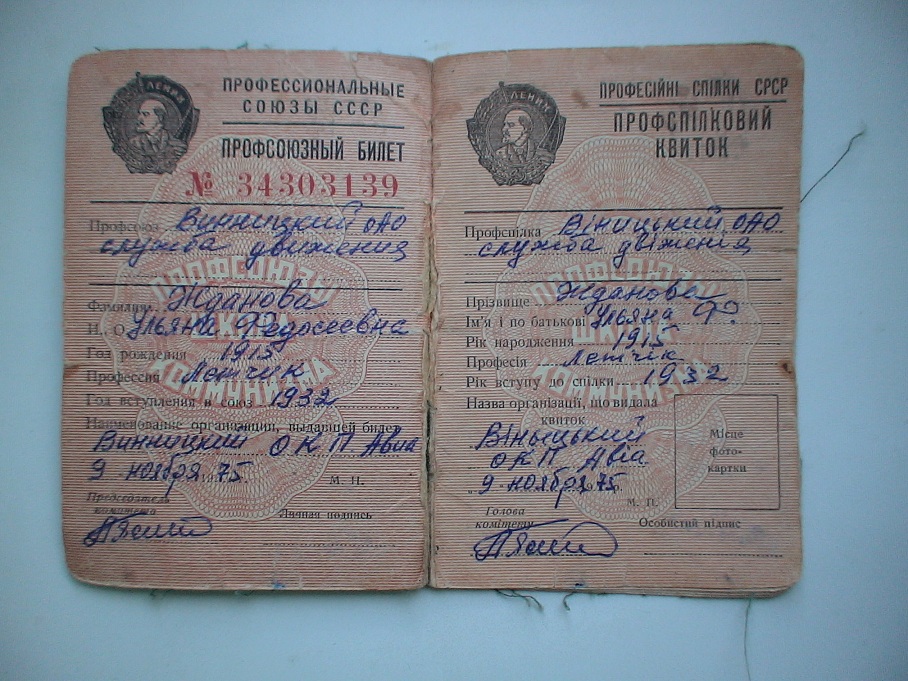 ЛЕНИН
ПРОФЕССИОНАЛЬНЫЕ
СОЮЗЫ СССР
ПРОФСОЮЗНЫЙ БИЛЕТ
№ 34303139
Профсоюз Винницкий ОАО
служба движения
Фамилия Жданова
И., О. Ульяна Федосеевна
Год рождения 1915
Профессия Летчик
Год вступления в союз 1932
Наименование организации, выдавшей билет
Винницкий ОКП Авиа
9 ноября 1975
М. П.
Председатель
комитета
Личная подпись
ПРОФСОЮЗЫ
ШКОЛА
КОММУНИЗМА
ЛЕНИН
ПРОФЕСІЙНІ СПІЛКИ СРСР
ПРОФСПІЛКОВИЙ
КВИТОК
Профспілка Віницький ОАО
служба двіжения
Прізвище Жданова
Ім'я і по батькові Ульяна Ф.
Рік народження 1915
Професія Летчик
Рік вступу до спілки 1932
Назва організації, що видала
квиток
Віныцький
ОКП Авіа
9 ноября 1975
М. П.
Місце
фото-
картки
Голова
комітету
Особистий підпис
ПРОФСОЮЗЫ
ШКОЛА
КОММУНИЗМА